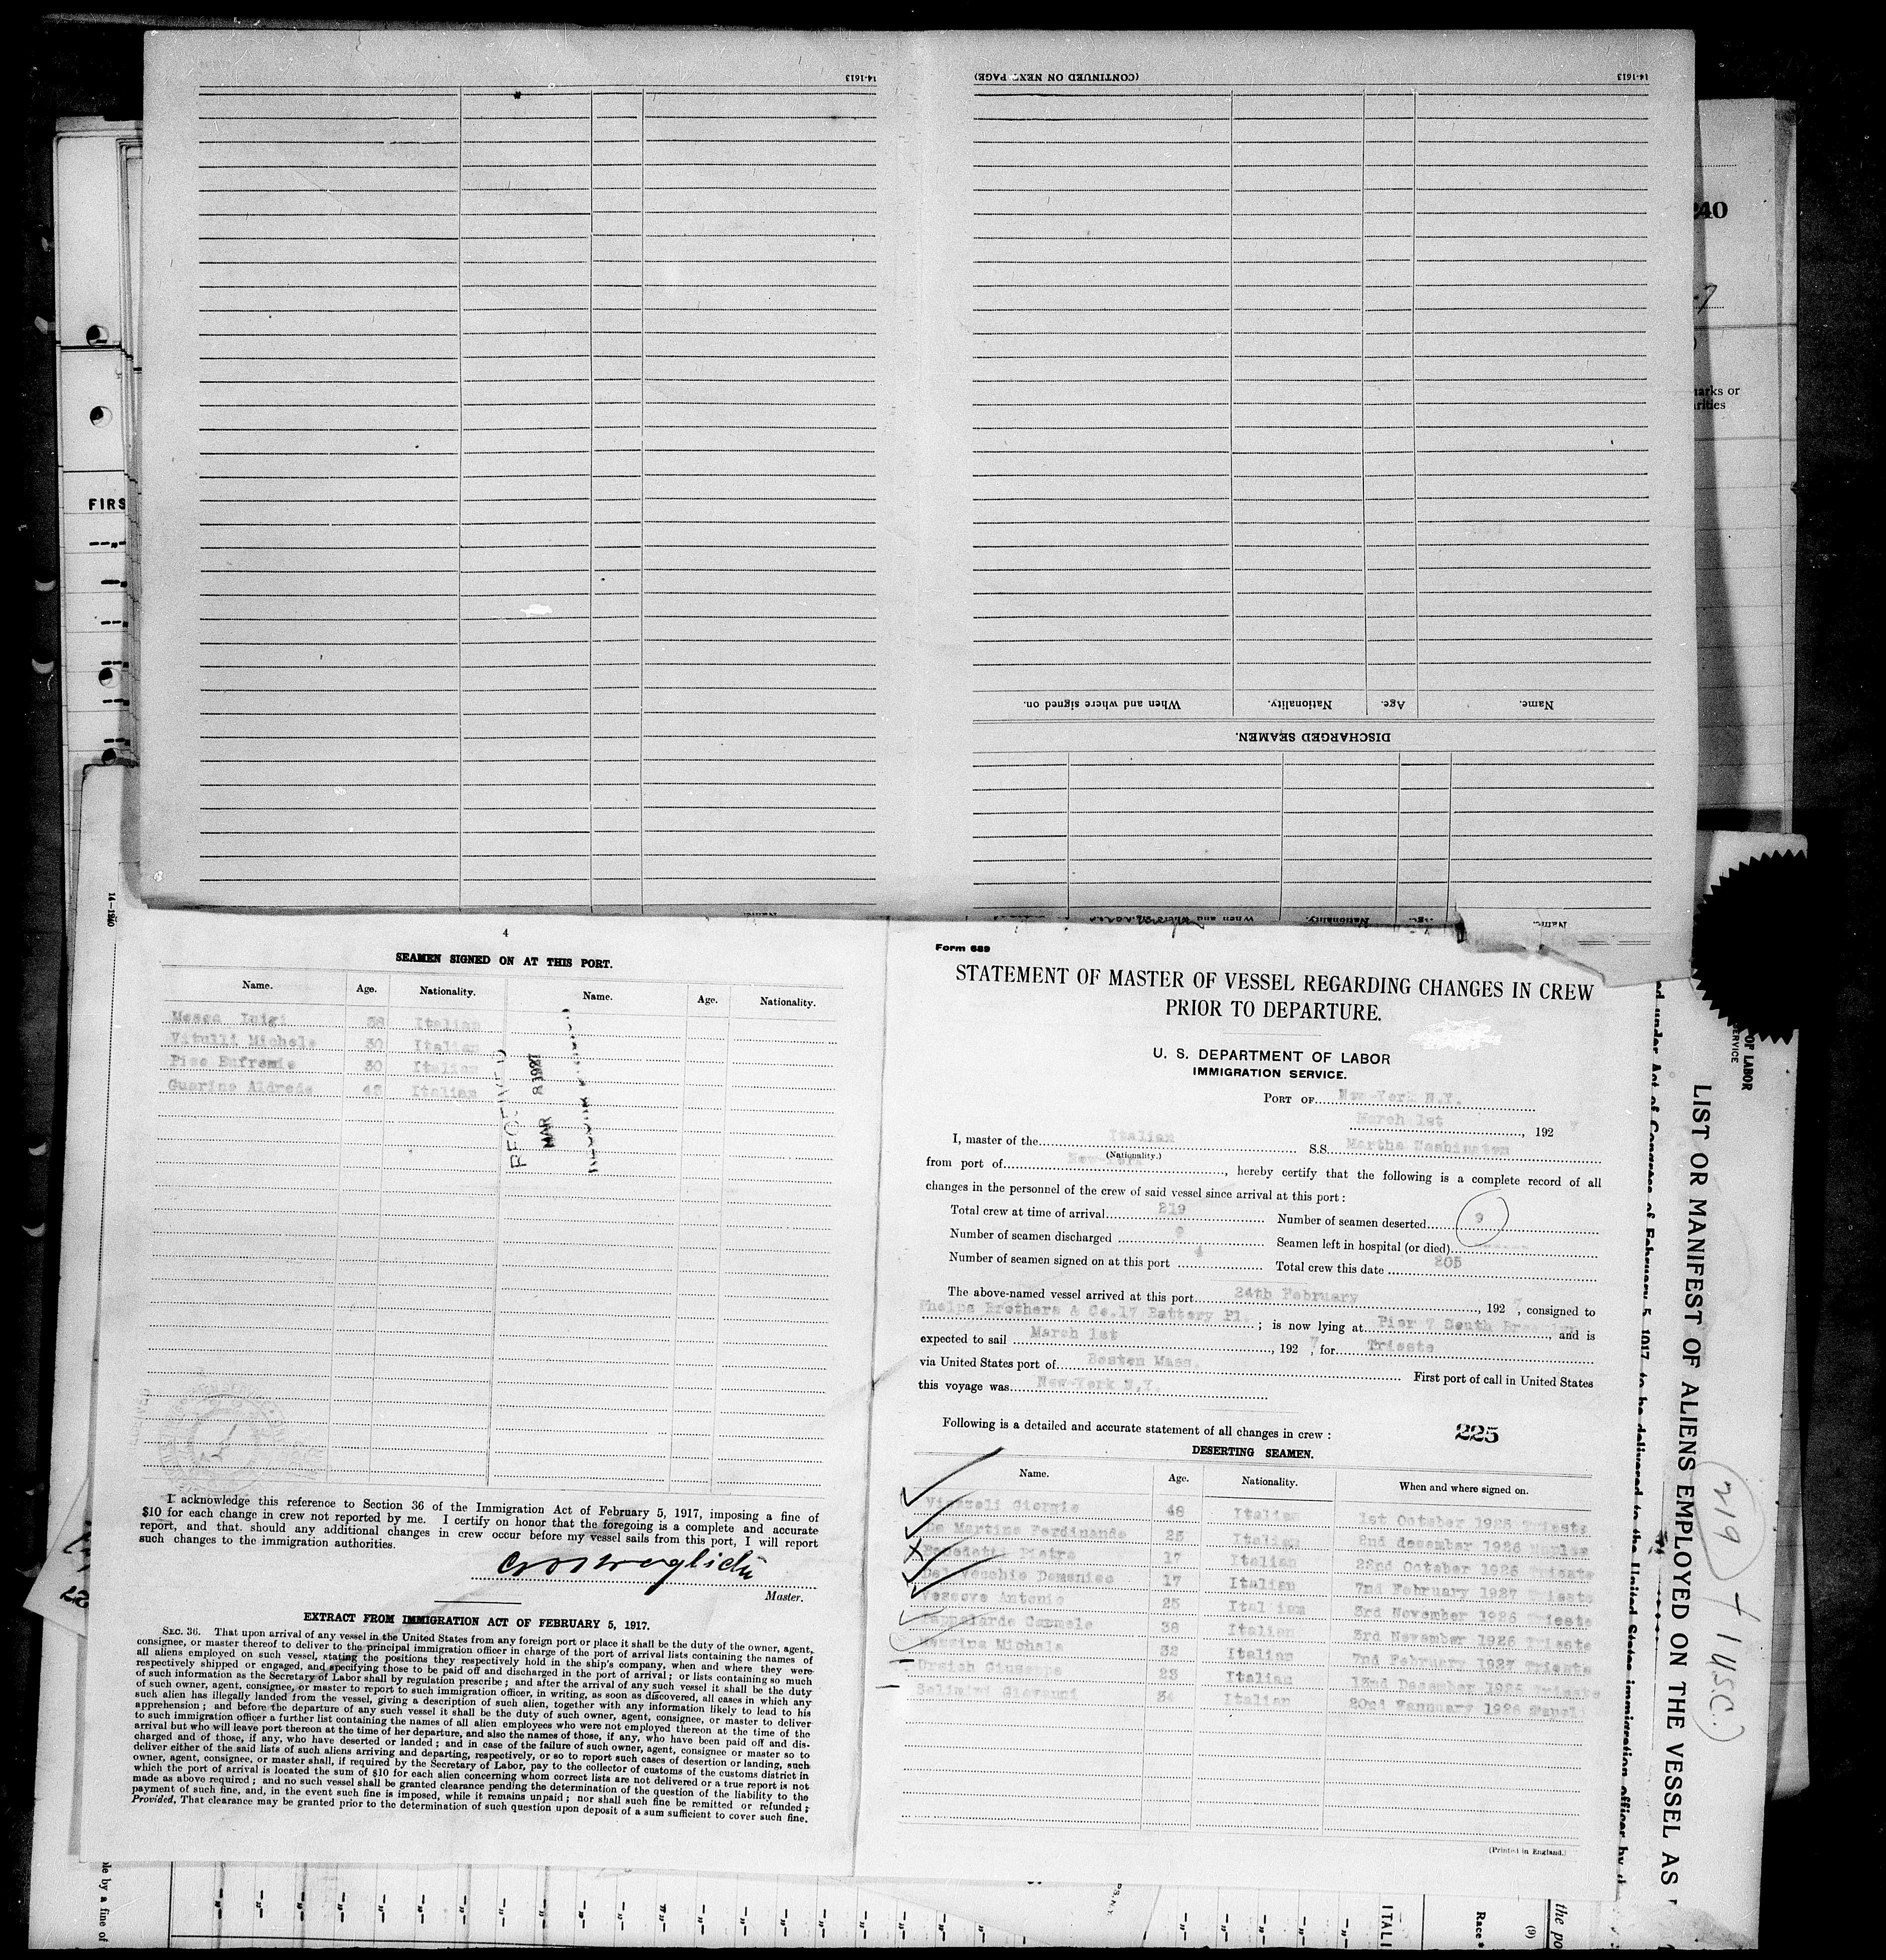 14-1613
(CONTINUED ON NEXT PAGE)
14-1613
When and where signed on.
Nationality.
Age.
Name.
DISCHARGED SEAMEN.
240
marks or
FIRS
14-1240
4
SEAMEN SIGNED ON AT THIS PORT.
Name. Age. Nationality. Name. Age. Nationality.
Luigi 38 Italian
Vitulli Michele 30 Italian
30 Italian
Guarino 42 Italian
RECEIVED
MAR 8 1927
I acknowledge this reference to Section 36 of the Immigration Act of February 5, 1917, imposing a fine of
$10 for each change in crew not reported by me. I certify on honor that the foregoing is a complete and accurate
report, and that. should any additional changes in crew occur before my vessel sails from this port, I will report
such changes to the immigration authorities.
Master.
EXTRACT FROM IMMIGRATION ACT OF FEBRUARY 5, 1917.
SEC. 36. That upon arrival of any vessel in the United States from any foreign port or place it shall be the duty of the owner, agent,
consignee, or master thereof to deliver to the principal immigration officer in charge of the port of arrival lists containing the names of
all aliens employed on such vessel, stating the positions they respectively hold in the ship's company, when and where they were
respectively shipped or engaged, and specifying those to be paid off and discharged in the port of arrival; or lists containing so much
of such information as the Secretary of Labor shall by regulation prescribe; and after the arrival of any such vessel it shall be the duty
of such owner, agent, consignee, or master to report to such immigration officer, in writing, as soon as discovered, all cases in which any
such alien has illegally landed from the vessel, giving a description of such alien, together with any information likely to lead to his
apprehension; and before the departure of any such vessel it shall be the duty of such owner, agent, consignee, or master to deliver
to such immigration officer a further list containing the names of all alien employees who were not employed thereon at the time of the
arrival but who will leave port thereon at the time of her departure, and also the names of those, if any, who have been paid off and dis-
charged and of those, if any, who have deserted or landed; and in case of the failure of such owner, agent, consignee or master so to
deliver either of the said lists of such aliens arriving and departing, respectively, or so to report such cases of desertion or landing, such
owner, agent, consignee, or master shall, if required by the Secretary of Labor, pay to the collector of customs of the customs district in
which the port of arrival is located the sum of $10 for each alien concerning whom correct lists are not delivered or a true report is not
made as above required; and no such vessel shall be granted clearance pending the determination of the question of the liability to the
payment of such fine, and, in the event such fine is imposed, while it remains unpaid; nor shall such fine be remitted or refunded;
Provided, That clearance may be granted prior to the determination of such question upon deposit of a sum sufficient to cover such fine.
Form 689
STATEMENT OF MASTER OF VESSEL REGARDING CHANGES IN CREW
PRIOR TO DEPARTURE.
U. S. DEPARTMENT OF LABOR
IMMIGRATION SERVICE.
PORT OF New-York N.Y.
March 1st, 1927
I, master of the Italian S.S. Martha Washington
(Nationality.)
from port of New-York, hereby certify that the following is a complete record of all
changes in the personnel of the crew of said vessel since arrival at this port:
Total crew at time of arrival 219 Number of seamen deserted 9
Number of seamen discharged 9 Seamen left in hospital (or died) -----
Number of seamen signed on at this port 4 Total crew this date 205
The above-named vessel arrived at this port 24th February, 1927, consigned to
Phelps Brothers & Co. 17 Battery Pl.; is now lying at Pier 7 South Brooklyn, and is
expected to sail March 1st, 1927, for Trieste
via United States port of Boston Mass. First port of call in United States
this voyage was New-York N.Y.
Following is a detailed and accurate statement of all changes in crew:
225
DESERTING SEAMEN.
Name. Age. Nationality. When and where signed on.
Giorgio 48 Italian 1st October 1926 Trieste
De Martino Ferdinando 25 Italian 2nd december 1926 Naples
Benedetti Pietro 17 Italian 22nd October 1926 Trieste
Del Vecchio Domenico 17 Italian 7nd February 1927 Trieste
Antonio 25 Italian 3rd November 1926 Trieste
Pappalardo Carmelo 38 Italian 3rd November 1926 Trieste
Messina Michele 32 Italian 7nd February 1927 Trieste
Ursich Giuseppe 23 Italian 13nd December 1926 Trieste
Giovanni 34 Italian 20nd 1926
(Printed in England.)
OF LABOR
SERVICE
LIST OR MANIFEST OF ALIENS EMPLOYED ON THE VESSEL AS
219 + 1 USC.)
nd under Act of Congress of February 5, 1917, to be delivered to the United States immigration officer by the
ble by a fine of
ITALI
Race*
(9)
the po